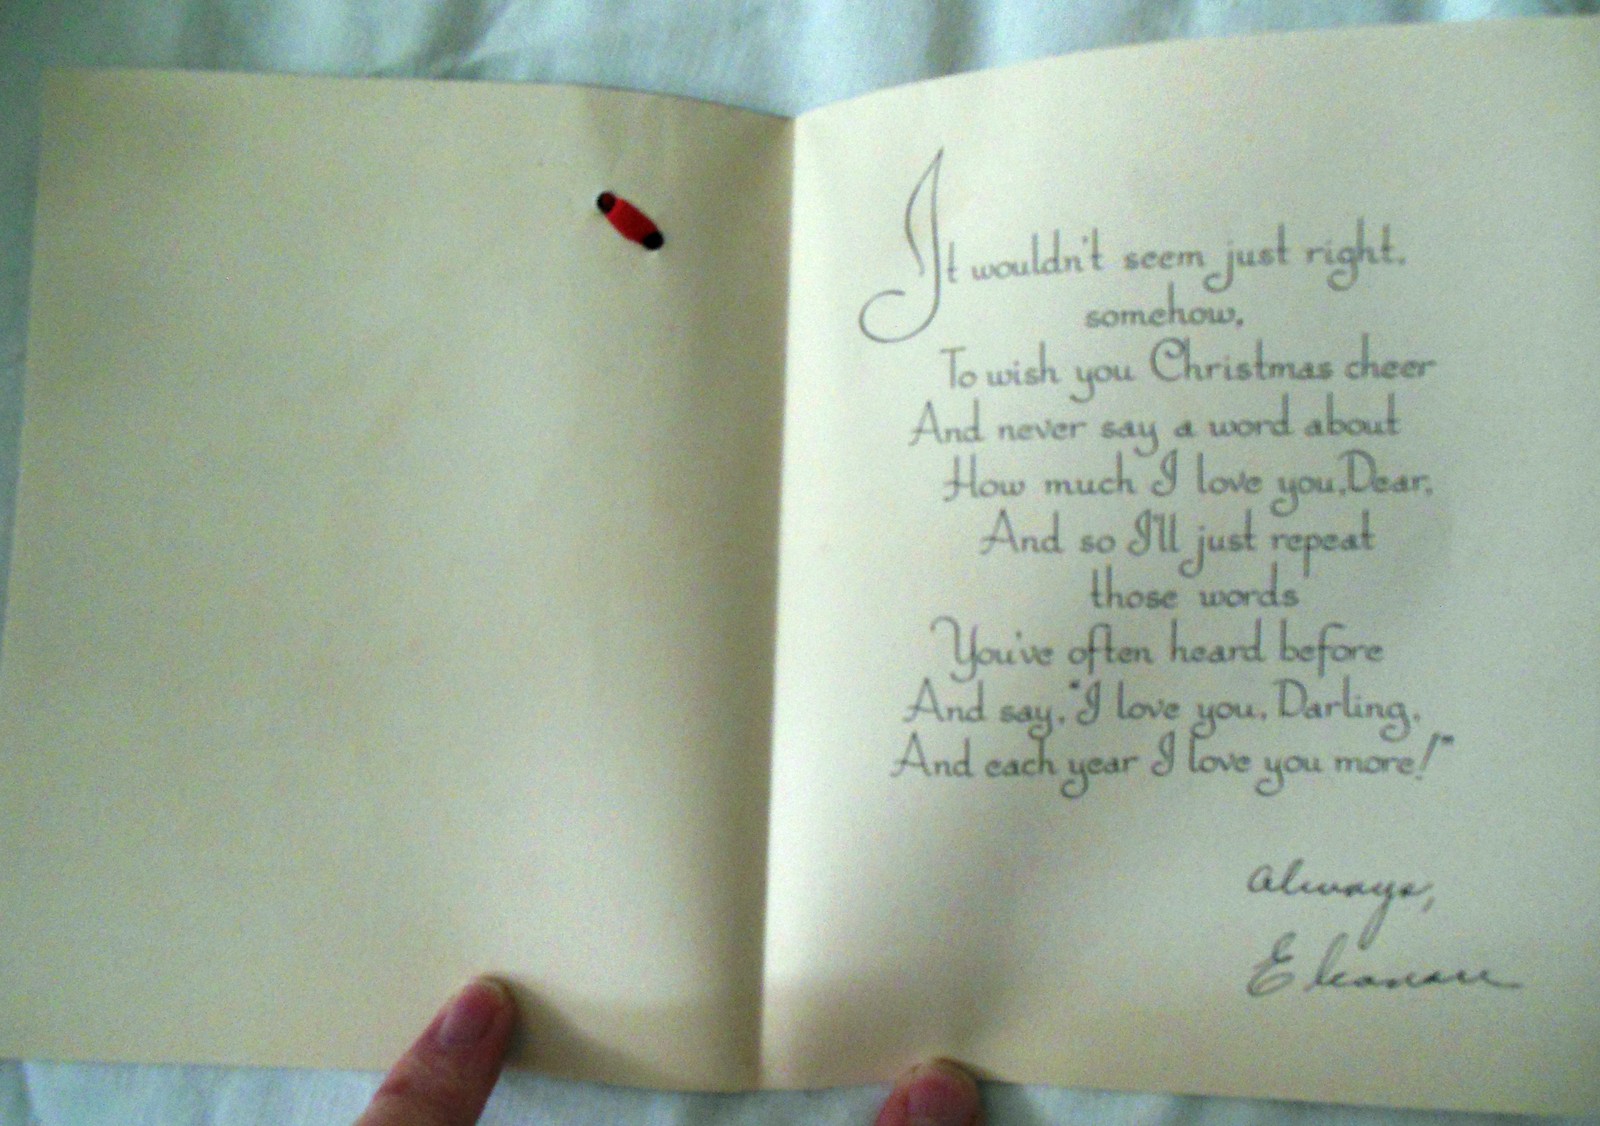 It wouldn't seem just right,
somehow,
To wish you Christmas cheer
And never say a word about
How much I love you, Dear,
And so I'll just repeat
those words
You've often heard before
And say, "I love you, Darling,
And each year I love you more!"
Always,
Eleanore